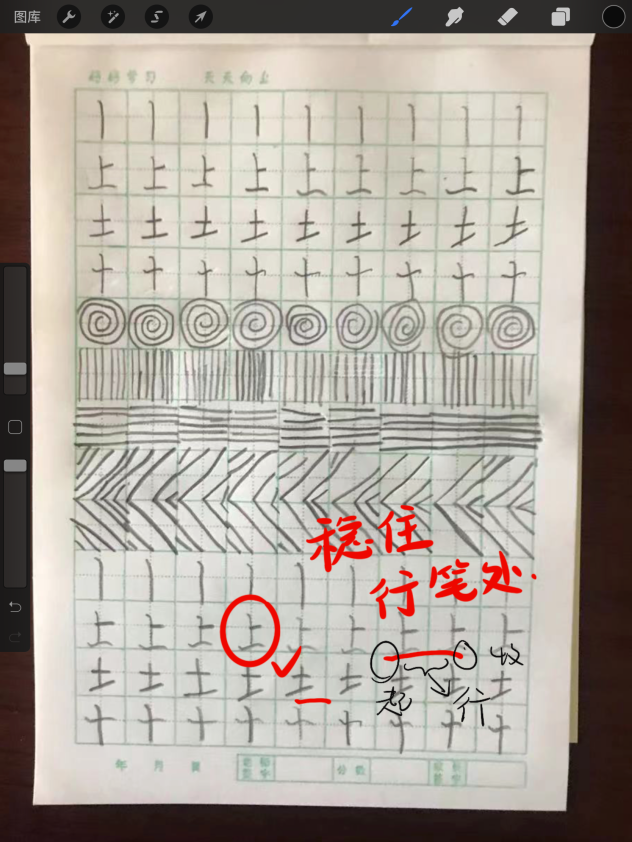 图库
好好学习 天天向上
丨 丨 丨 丨 丨 丨 丨 丨 丨
上 上 上 上 上 上 上 上 上
土 土 土 土 土 土 土 土 土
十 十 十 十 十 十 十 十 十
稳住
行笔处
丨 丨 丨 丨 丨 丨
上 上 上 上 上 上 上 上 上
收
土 土 土 土 土 土 土 土
起 行
十 十 十 十 十 十 十 十 十
年 月
分数